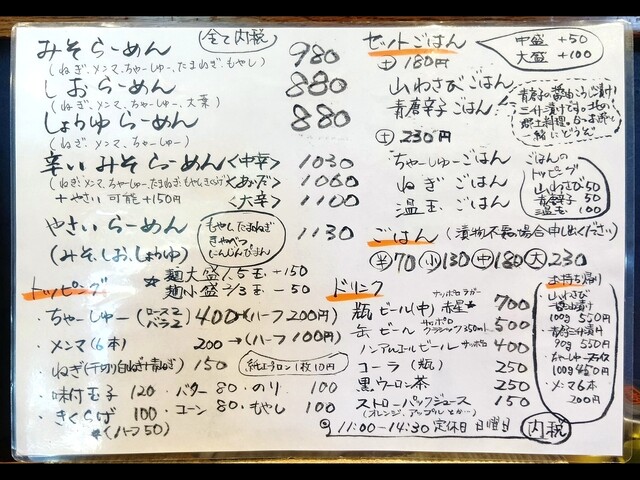 みそらーめん 全て内税 980
(ねぎ、メンマ、ちゃーしゅー、たまねぎ、もやし)
しおらーめん 880
(ねぎ、メンマ、ちゃーしゅー、大葉)
しょうゆらーめん 880
(ねぎ、メンマ、ちゃーしゅー)
辛いみそらーめん <中辛> 1030
(ねぎ、メンマ、ちゃーしゅー、たまねぎ、もやし、きくらげ) <あいだ> 1060
+やさい可能+150円 <大辛> 1100
やさいらーめん 1130
(みそ、しお、しょうゆ)
もやし、たまねぎ
きゃべつ
にんじん、ぴーまん
トッピング
★麺大盛1.5玉 +150
麺小盛2/3玉 -50
・ちゃーしゅー(ロース2 バラ2) 400→(ハーフ200円)
・メンマ(6本) 200→(ハーフ100円)
・ねぎ(千切り白ねぎ+青ねぎ) 150
紙エプロン1枚10円
・味付玉子 120 ・バター 80 ・のり 100
・きくらげ 100 ・コーン 80 ・もやし 100
(ハーフ50)
セットごはん
中盛 +50
大盛 +100
㊏180円
山わさびごはん
青唐辛子ごはん
青唐子の醤油こうじ漬け
三升漬けです。北の
郷土料理。
一緒にどうぞ
㊏230円
ちゃーしゅーごはん
ねぎごはん
温玉ごはん
ごはんの
トッピング
山わさび 50
青唐辛子 50
温玉 100
ごはん (漬物不要の場合申し出ください)
半70 小130 中180 大230
ドリンク
瓶ビール(中) サッポロラガー赤星★ 700
缶ビール サッポロクラシック350ml 500
ノンアルコールビール サッポロ 400
コーラ(瓶) 250
黒ウーロン茶 250
ストローパックジュース 150
(オレンジ、アップルとか…)
11:00-14:30 定休日 日曜日 内税
お持ち帰り
・山わさび
醤油漬け
100g 550円
・青唐三升漬け
90g 550円
・ちゃーしゅー
100g 450円
・メンマ6本
200円